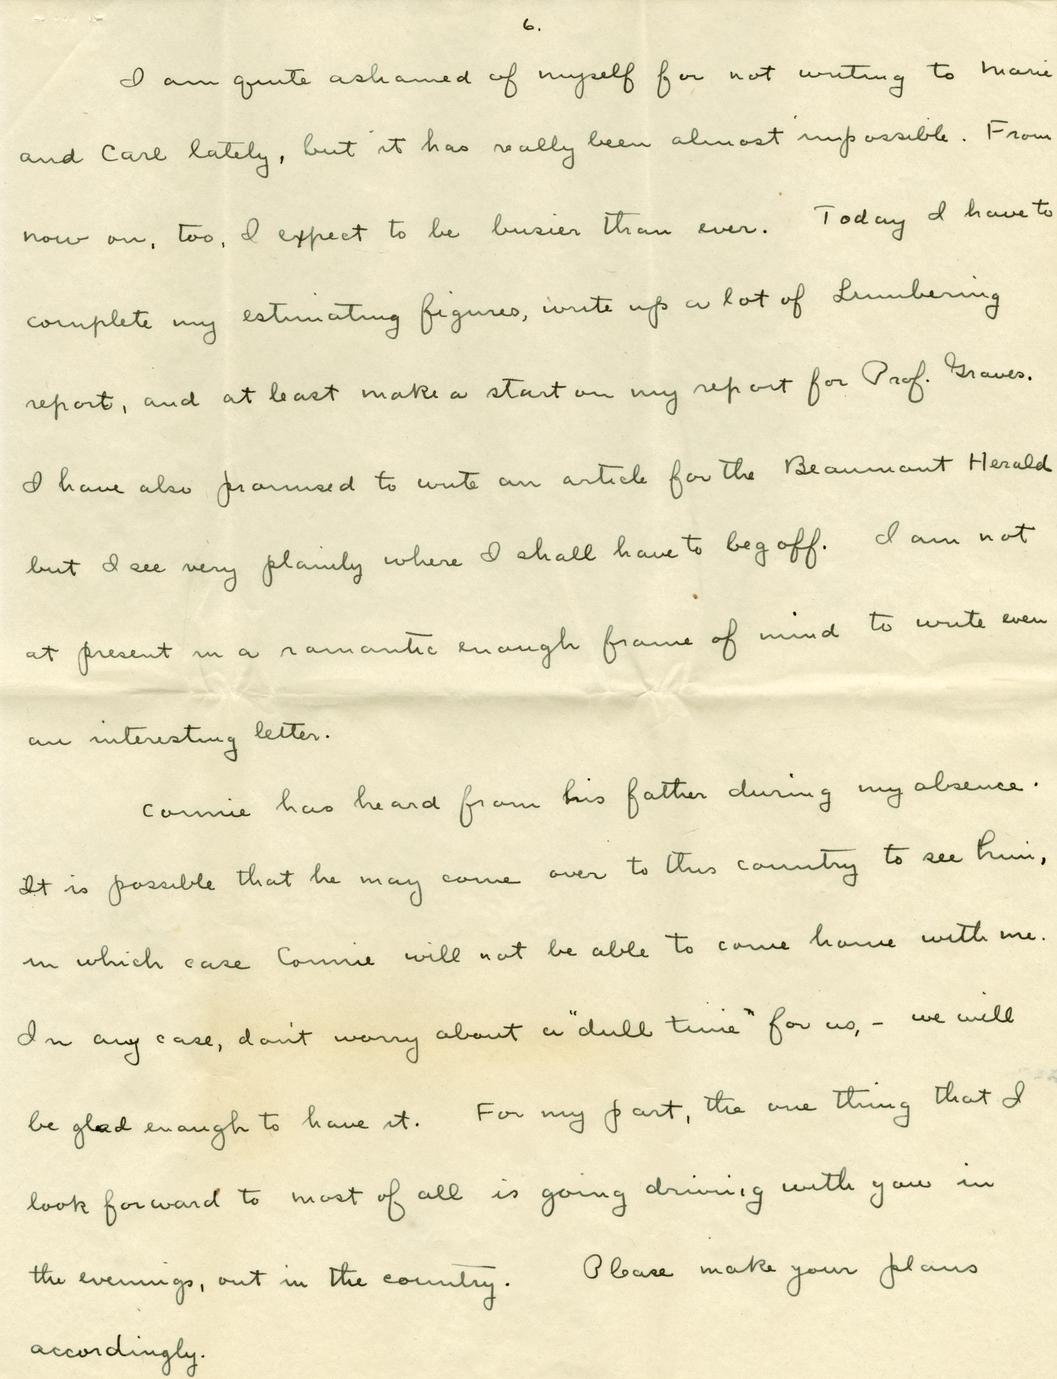 6.
I am quite ashamed of myself for not writing to Marie
and Carl lately, but it has really been almost impossible. From
now on, too, I expect to be busier than ever. Today I have to
complete my estimating figures, write up a lot of Lumbering
report, and at least make a start on my report for Prof. Graves.
I have also promised to write an article for the Beaumont Herald
but I see very plainly where I shall have to beg off. I am not
at present in a romantic enough frame of mind to write even
an interesting letter.
Connie has heard from his father during my absence.
It is possible that he may come over to this country to see him,
in which case Connie will not be able to come home with me.
In any case, don't worry about a "dull time" for us, - we will
be glad enough to have it. For my part, the one thing that I
look forward to most of all is going driving with you in
the evenings, out in the country. Please make your plans
accordingly.